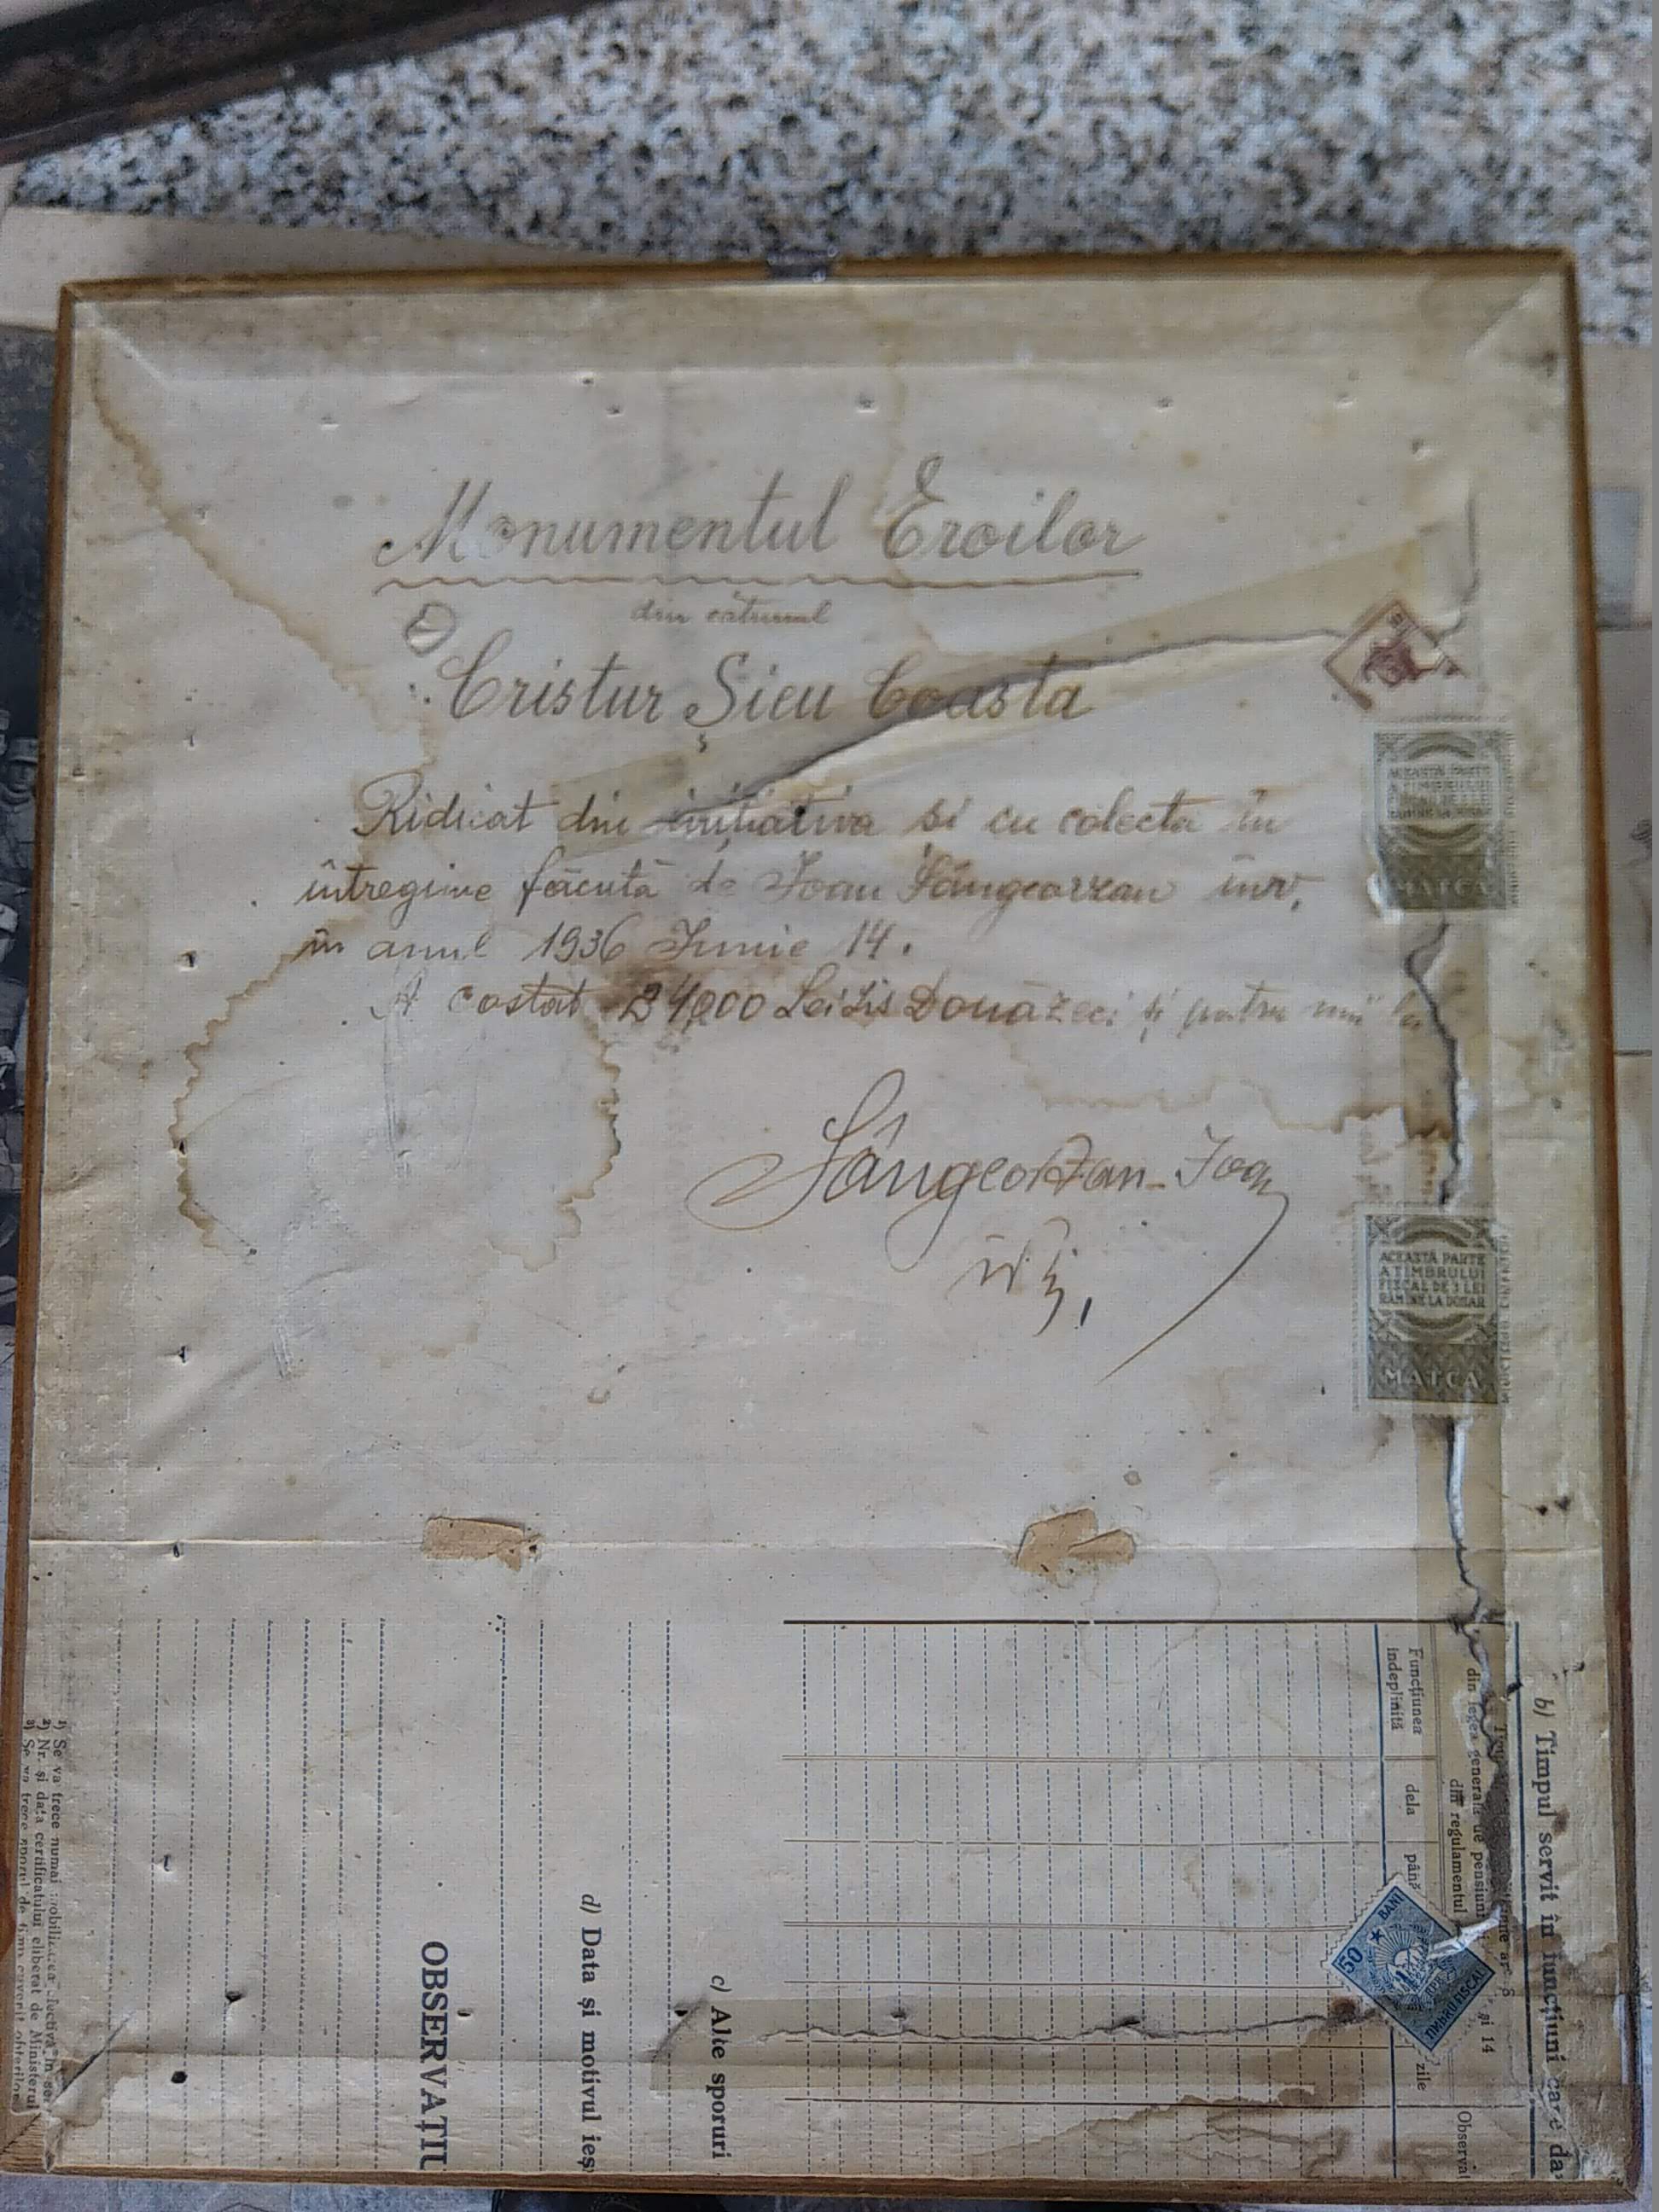 Monumentul Eroilor
din cătunul
Cristur Șieu Coasta
Ridicat din inițiativa și cu colecta în
întregime făcută de Ioan Sângeorzan înv.
în anul 1936 Iunie 14.
A costat 24000 Lei Lis Douăzeci și patru mii lei
Sângeorzan Ioan
înv.
ACEASTĂ PARTE
A TIMBRULUI
MATCA
ACEASTĂ PARTE
A TIMBRULUI
FISCAL DE 3 LEI
RĂMÂNE LA DOSAR
MATCA
b) Timpul servit în funcțiuni care da
din legea generală de pensiuni
și 14
din regulamentul
Funcțiunea
îndeplinită
dela
până
zile
Observaț
50 BANI
RPR
TIMBRU FISCAL
c) Alte sporuri
d) Data și motivul ieș
OBSERVAȚIU
1) Se va trece numai mobilizarea efectivă în
2) Nr. și data certificatului eliberat de Ministerul
3) Se va trece sporul de timp cuvenit ofițerilor